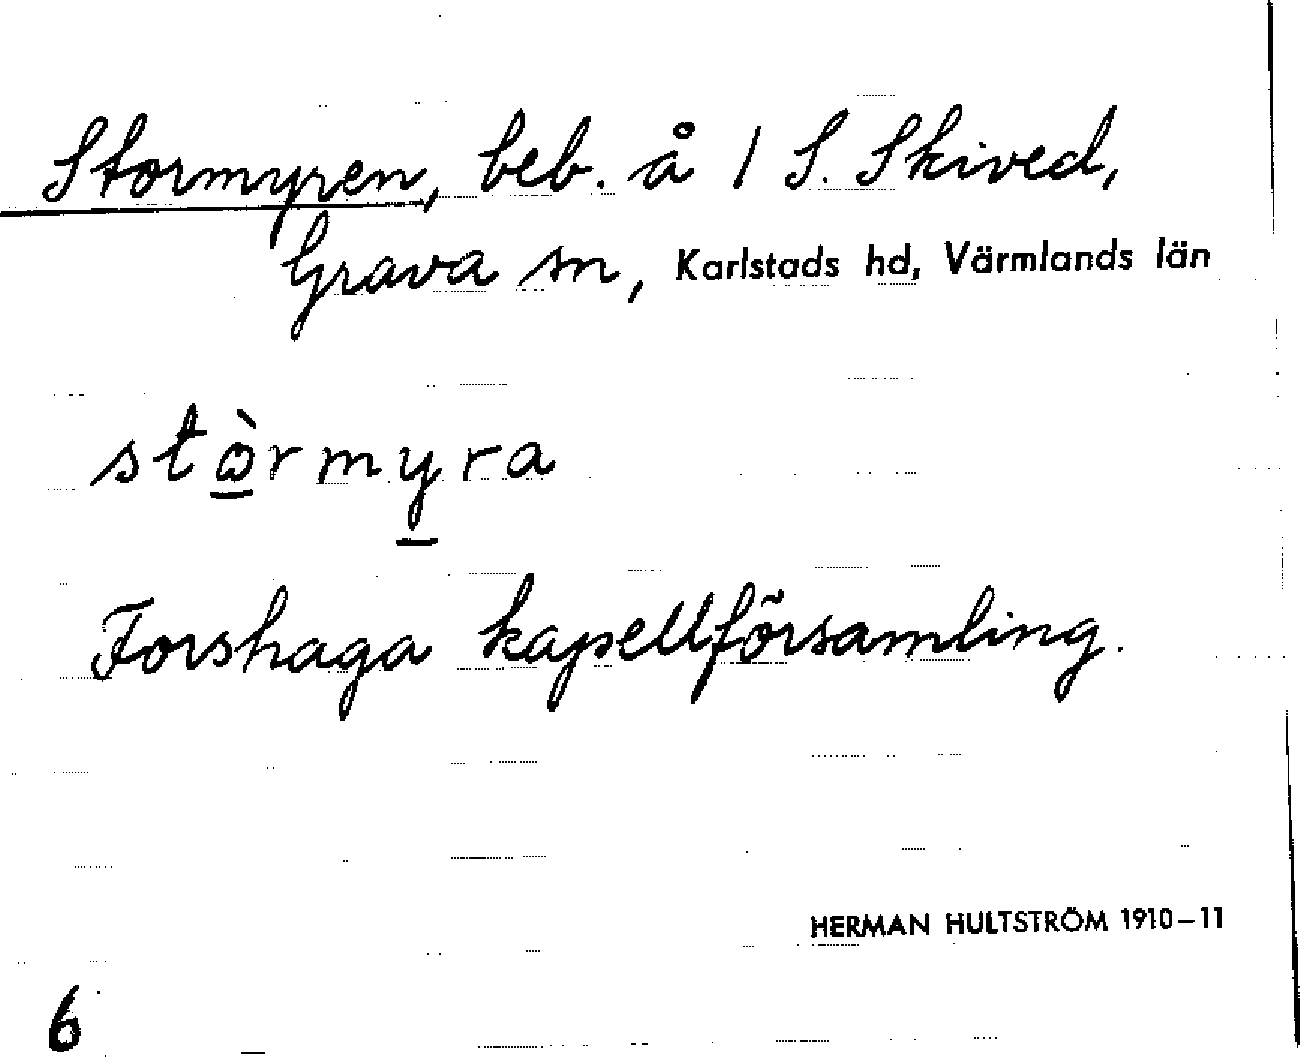 Stormyren, beb. å 1 S. Skived,
Grava sn, Karlstads hd, Värmlands län
stòrmyra
Forshaga kapellförsamling.
HERMAN HULTSTRÖM 1910–11
6